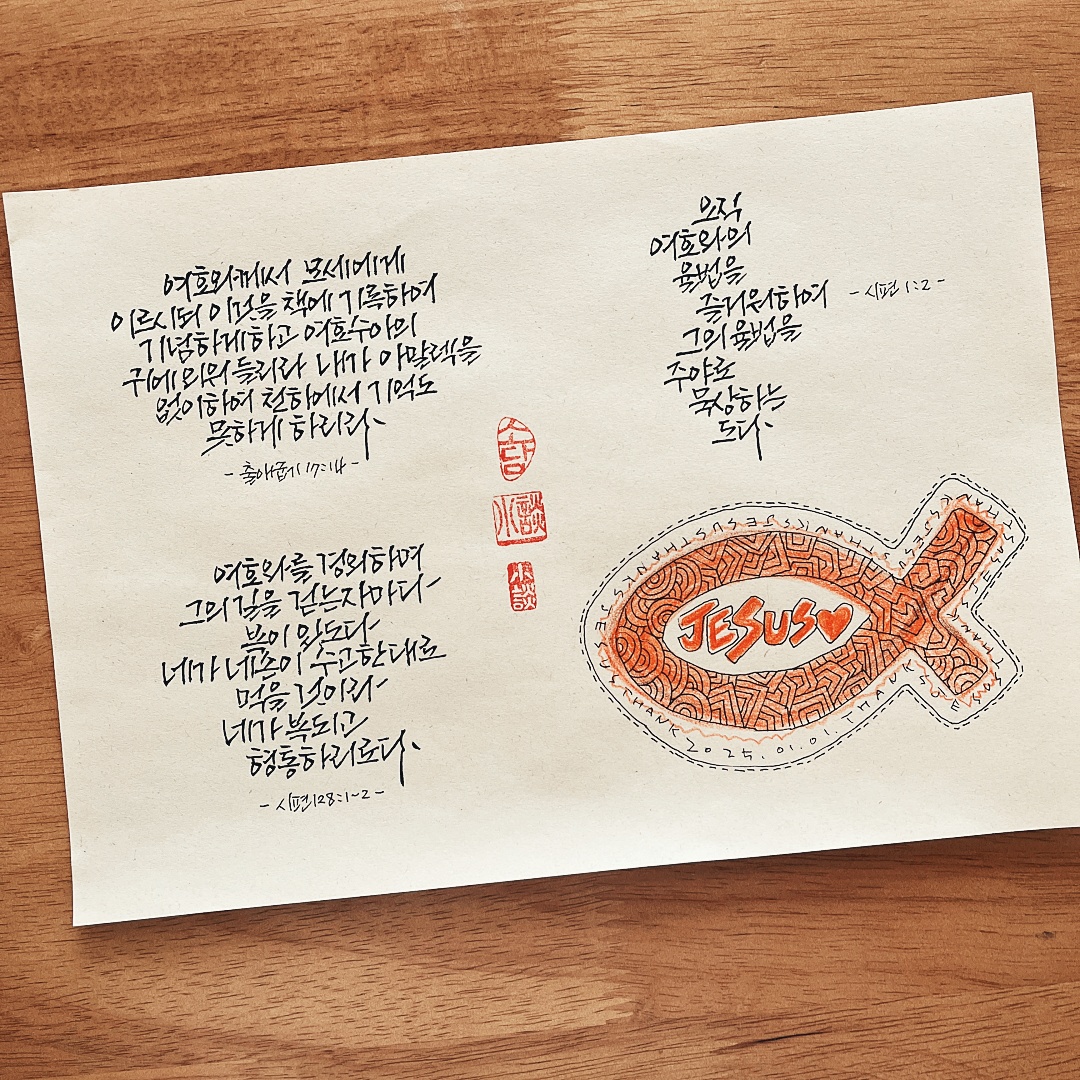 여호와께서 모세에게
이르시되 이것을 책에 기록하여
기념하게하고 여호수아의
귀에 외워 들리라 내가 아말렉을
없이하여 천하에서 기억도
못하게 하리라
- 출애굽기 17:14 -
여호와를 경외하며
그의 길을 걷는자마다
복이 있도다
네가 네손이 수고한대로
먹을 것이라
네가 복되고
형통하리로다.
- 시편 128:1~2 -
소담
小談
小談
오직
여호와의
율법을
즐거워하여
- 시편 1:2 -
그의 율법을
주야로
묵상하는
도다.
JESUS♥
THANKS JESUS THANKS JESUS
2025.01.01.